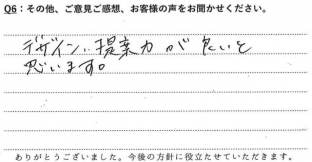 Q6：その他、ご意見ご感想、お客様の声をお聞かせください。
デザイン、提案力が良いと
思います。
ありがとうございました。今後の方針に役立たせていただきます。